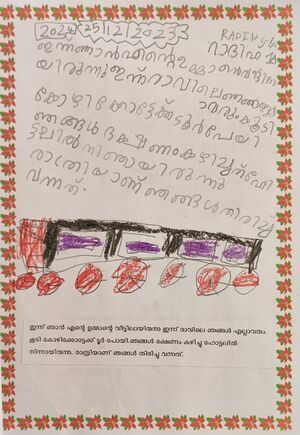 25/12/2023
റാദിഫ
ഇന്ന് ഞാൻ എന്റെ ഉമ്മാന്റെ വീട്ടിലാ
യിരുന്നു ഇന്ന് രാവിലെ ഞങ്ങൾ
കോഴിക്കോട്ടേക്ക് ടൂർ പോയി
ഞങ്ങൾ ഭക്ഷണം കഴിച്ച് ഹോ
ട്ടലിൽ നിന്നായിരുന്നു
രാത്രിയാണ് ഞങ്ങൾ തിരിച്ച്
വന്നത്.
ഇന്ന് ഞാൻ എന്റെ ഉമ്മാന്റെ വീട്ടിലായിരുന്നു ഇന്ന് രാവിലെ ഞങ്ങൾ എല്ലാവരും
കൂടി കോഴിക്കോട്ടേക്ക് ടൂർ പോയി.ഞങ്ങൾ ഭക്ഷണം കഴിച്ചു ഹോട്ടലിൽ
നിന്നായിരുന്നു. രാത്രിയാണ് ഞങ്ങൾ തിരിച്ചു വന്നത്.